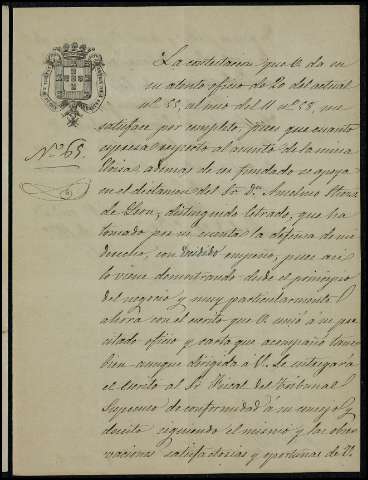 La contestacion que V. da en
su atento oficio de 20 del actual
nº 55, al mio del 11 nº 58, me
satisface por completo, pues que cuanto
Nº 65.
espresa respecto al asunto de la mina
ademas de ser fundado se apoya
en el dictamen del Sr Dn Anselmo
de Leon, distinguido letrado, que ha
tomado por mi cuenta la defensa de mi
derecho, con decidido empeno, pues asi
lo viene demostrando desde el principio
del negocio y muy particularmente
ahora con el escrito que V. unió á su
citado oficio y carta que acompañó tam
bien aunque dirigida á V. Se entregará
el escrito al Sr Fiscal del Tribunal
Supremo de conformidad á su consejo y
deseito siguiendo el mismo y las obser
vaciones satisfactorias y oportunas de V.